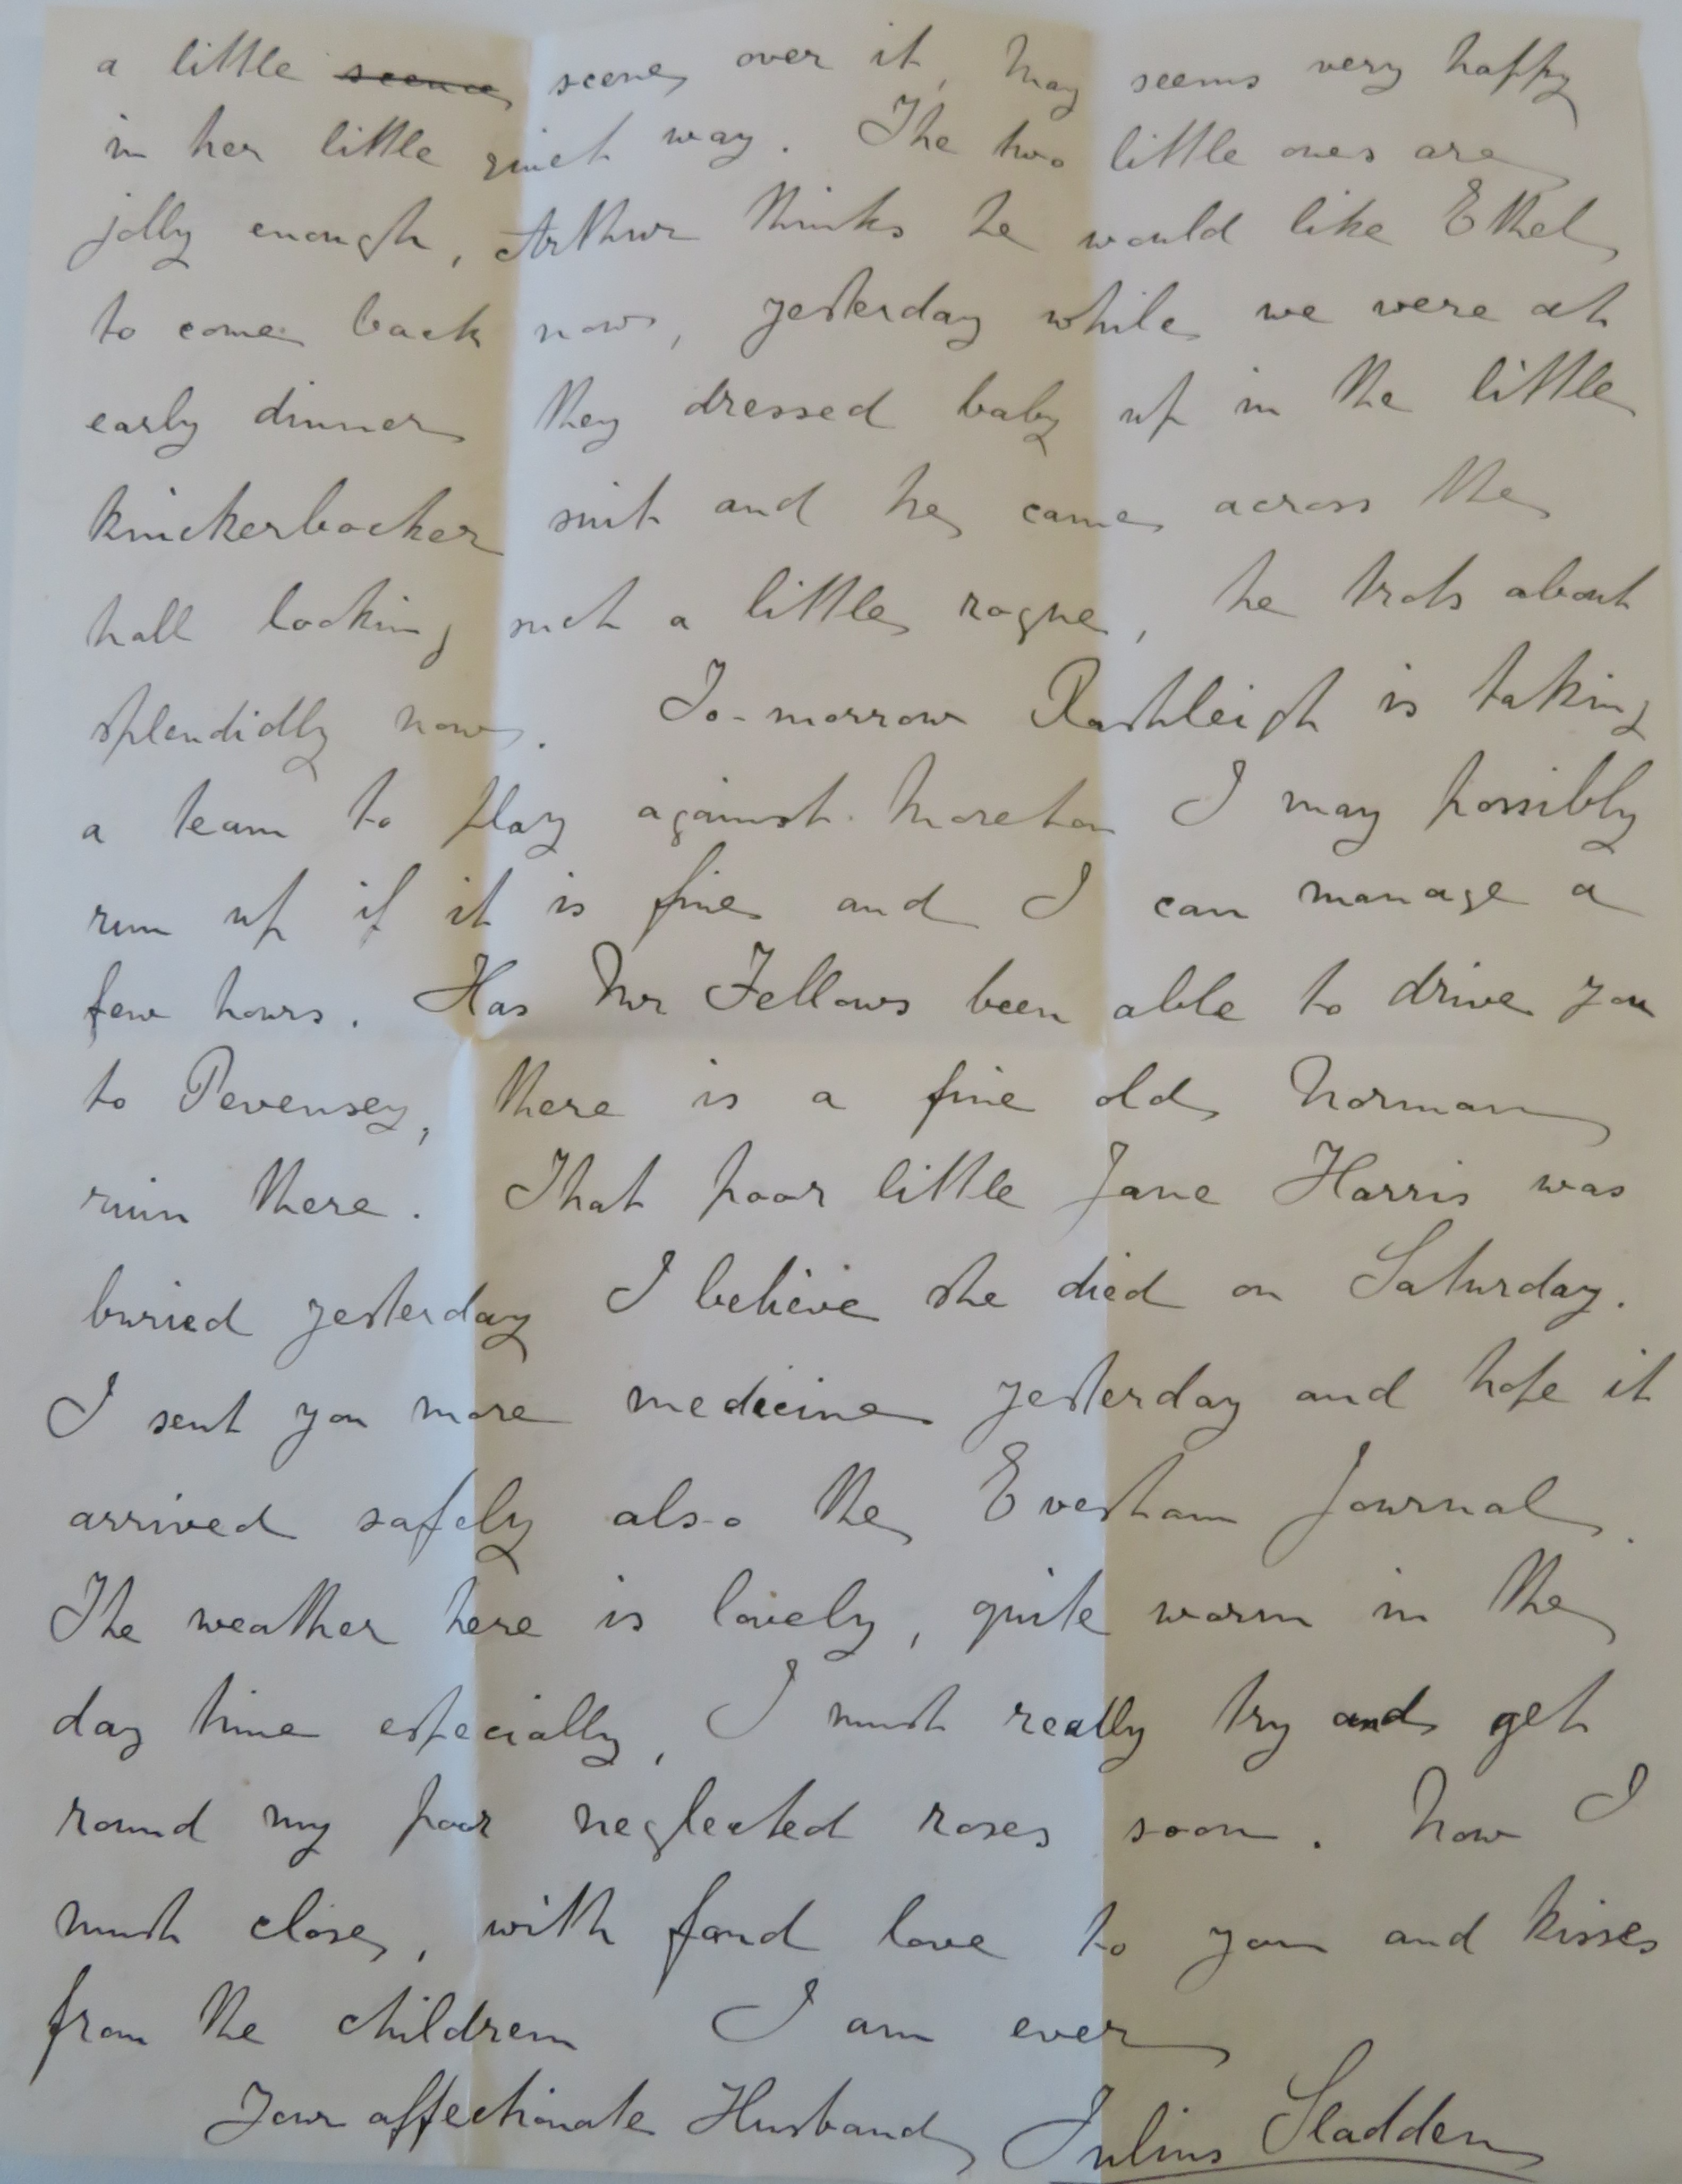 a little scene scene over it, May seems very happy
in her little quiet way. The two little ones are
jolly enough, Arthur thinks he would like Ethel
to come back now, yesterday while we were at
early dinner they dressed baby up in the little
knickerbocker suit and he came across the
hall looking such a little rogue, he trots about
splendidly now. To-morrow Rashleigh is taking
a team to play against Moreton I may possibly
run up if it is fine and I can manage a
few hours. Has Mr Fellows been able to drive you
to Pevensey, there is a fine old Norman
ruin there. That poor little Jane Harris was
buried yesterday I believe she died on Saturday.
I sent you more medicine yesterday and hope it
arrived safely also the Evesham Journal.
The weather here is lovely, quite warm in the
day time especially, I must really try and get
round my poor neglected roses soon. Now I
must close, with fond love to you and kisses
from the children I am ever
Your affectionate Husband Julius Sladden